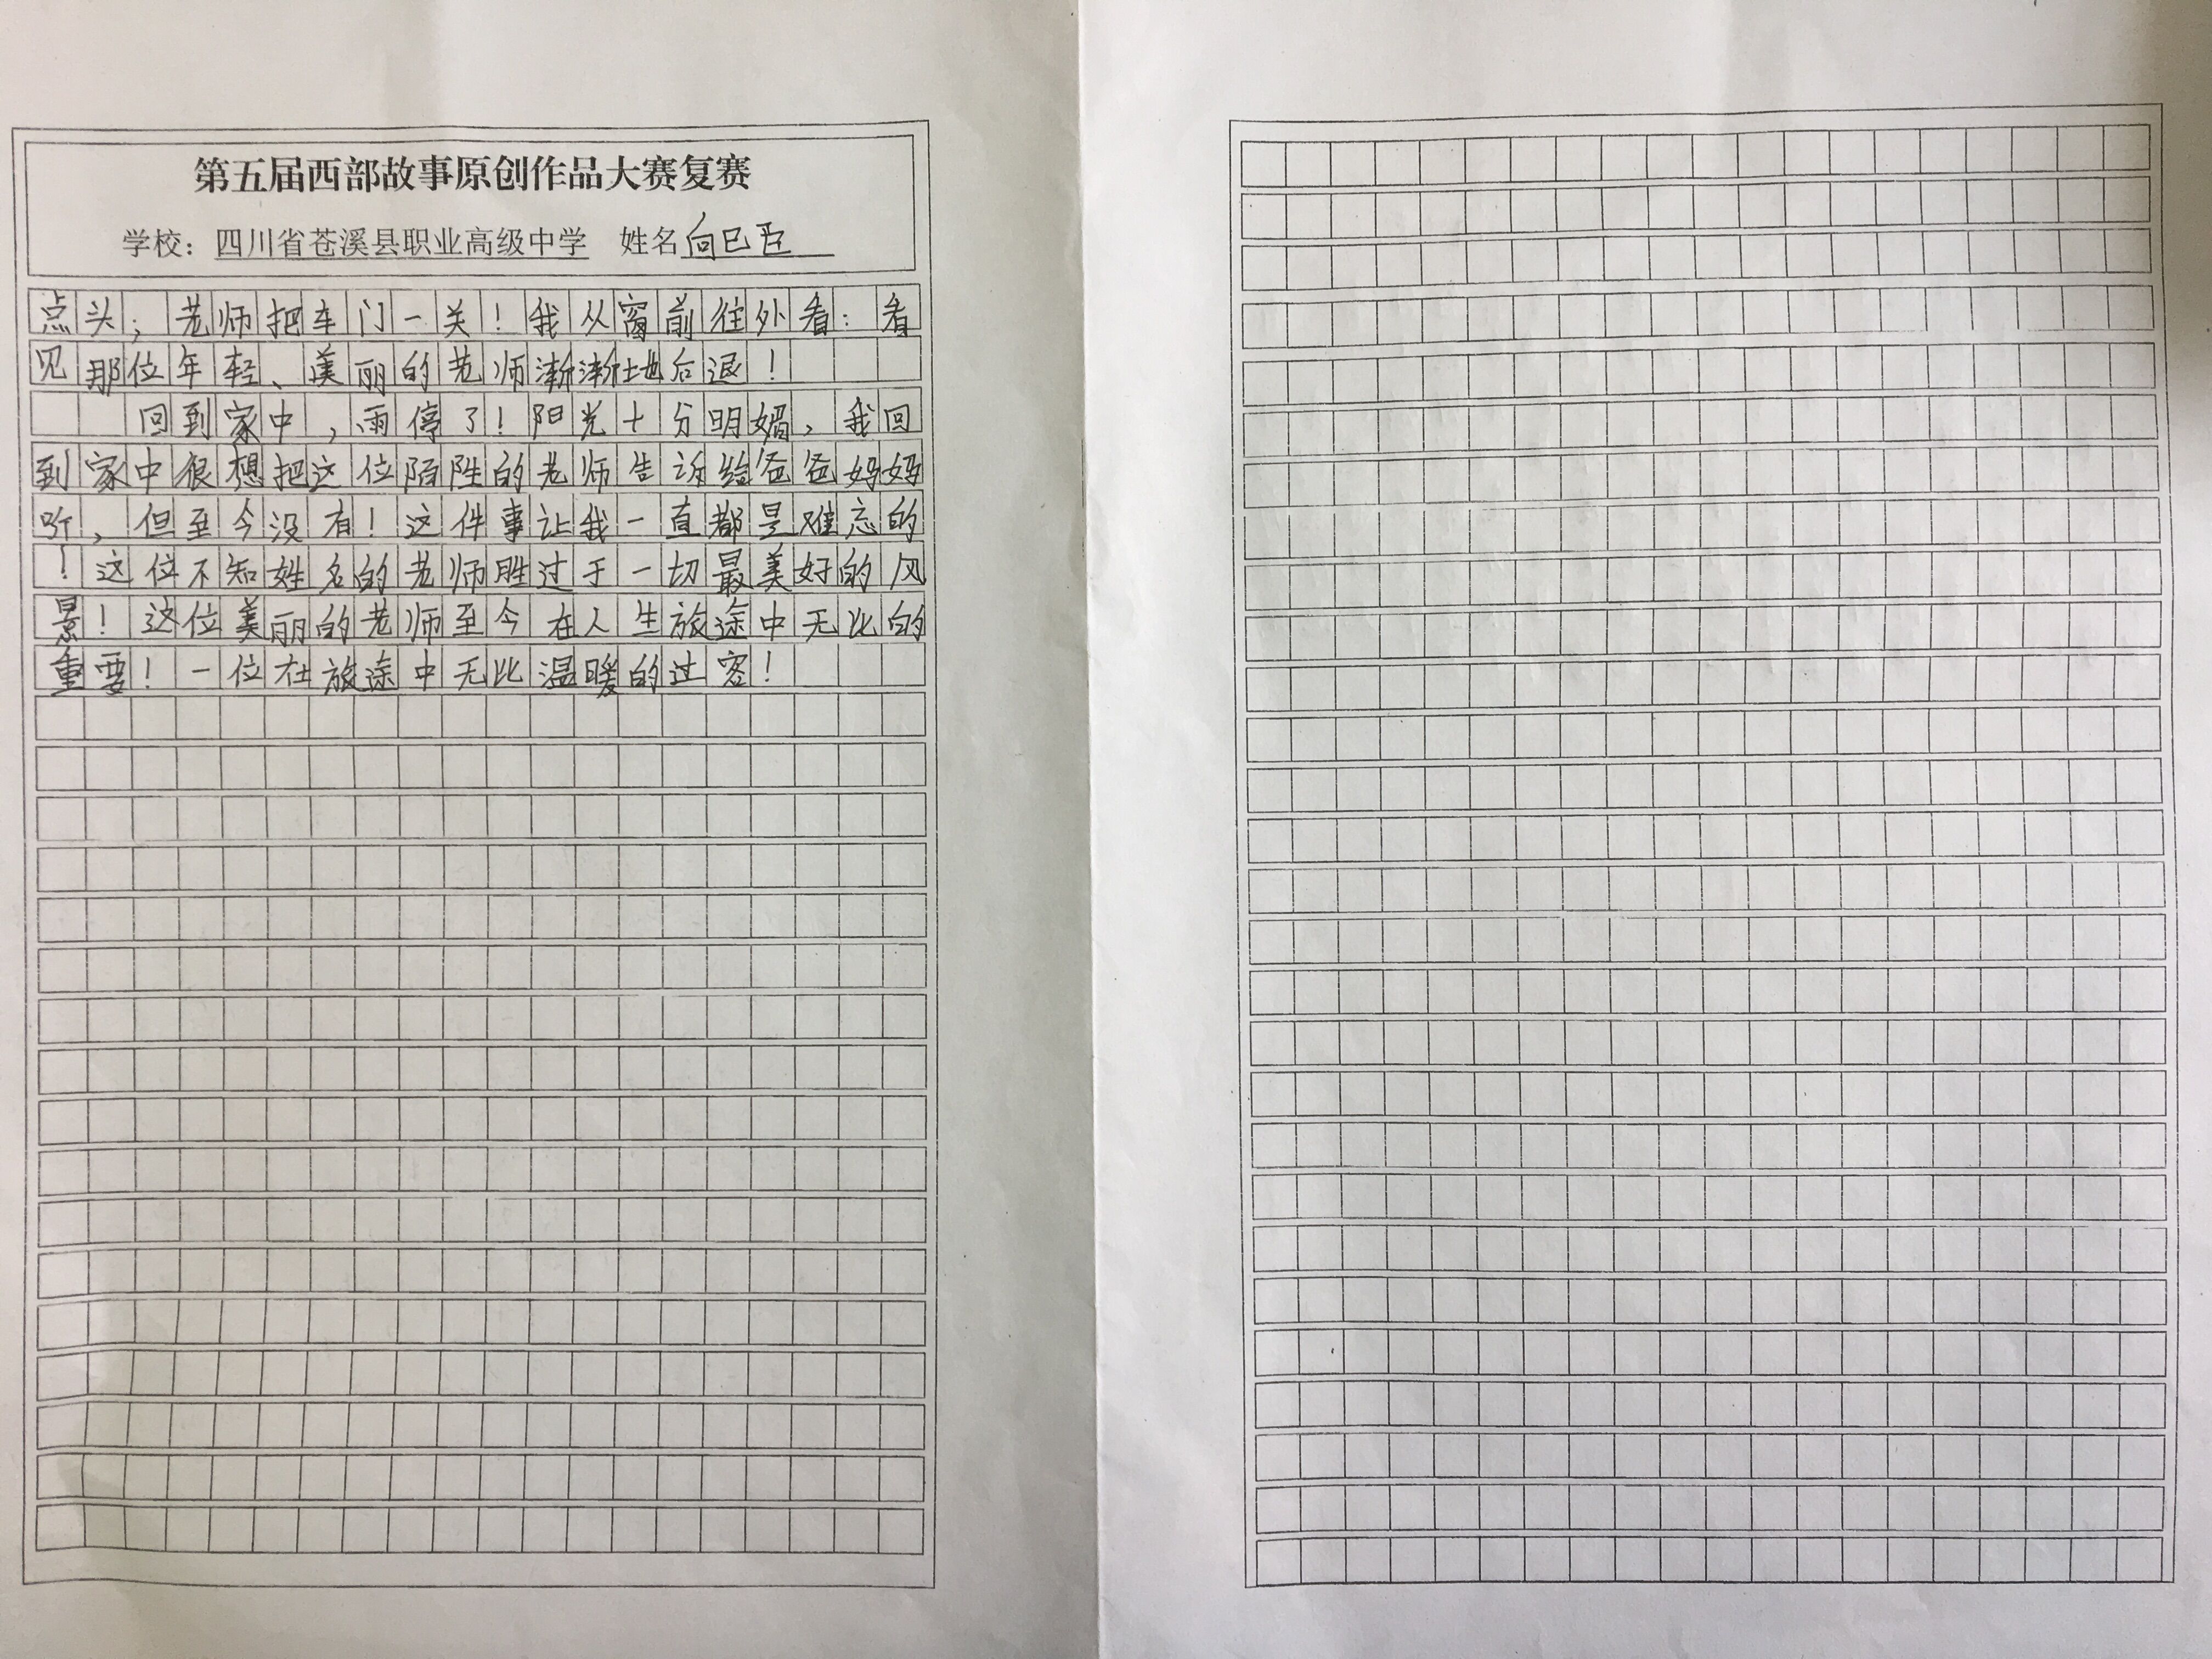 第五届西部故事原创作品大赛复赛
学校：四川省苍溪县职业高级中学 姓名向巳臣
点头；老师把车门一关！我从窗前往外看：看
见那位年轻、美丽的老师渐渐地后退！
回到家中，雨停了！阳光十分明媚，我回
到家中很想把这位陌陌的老师告诉给爸爸妈妈
听，但至今没有！这件事让我一直都是难忘的
！这位不知姓名的老师胜过于一切最美好的风
景！这位美丽的老师至今在人生旅途中无比的
重要！一位在旅途中无比温暖的过客！